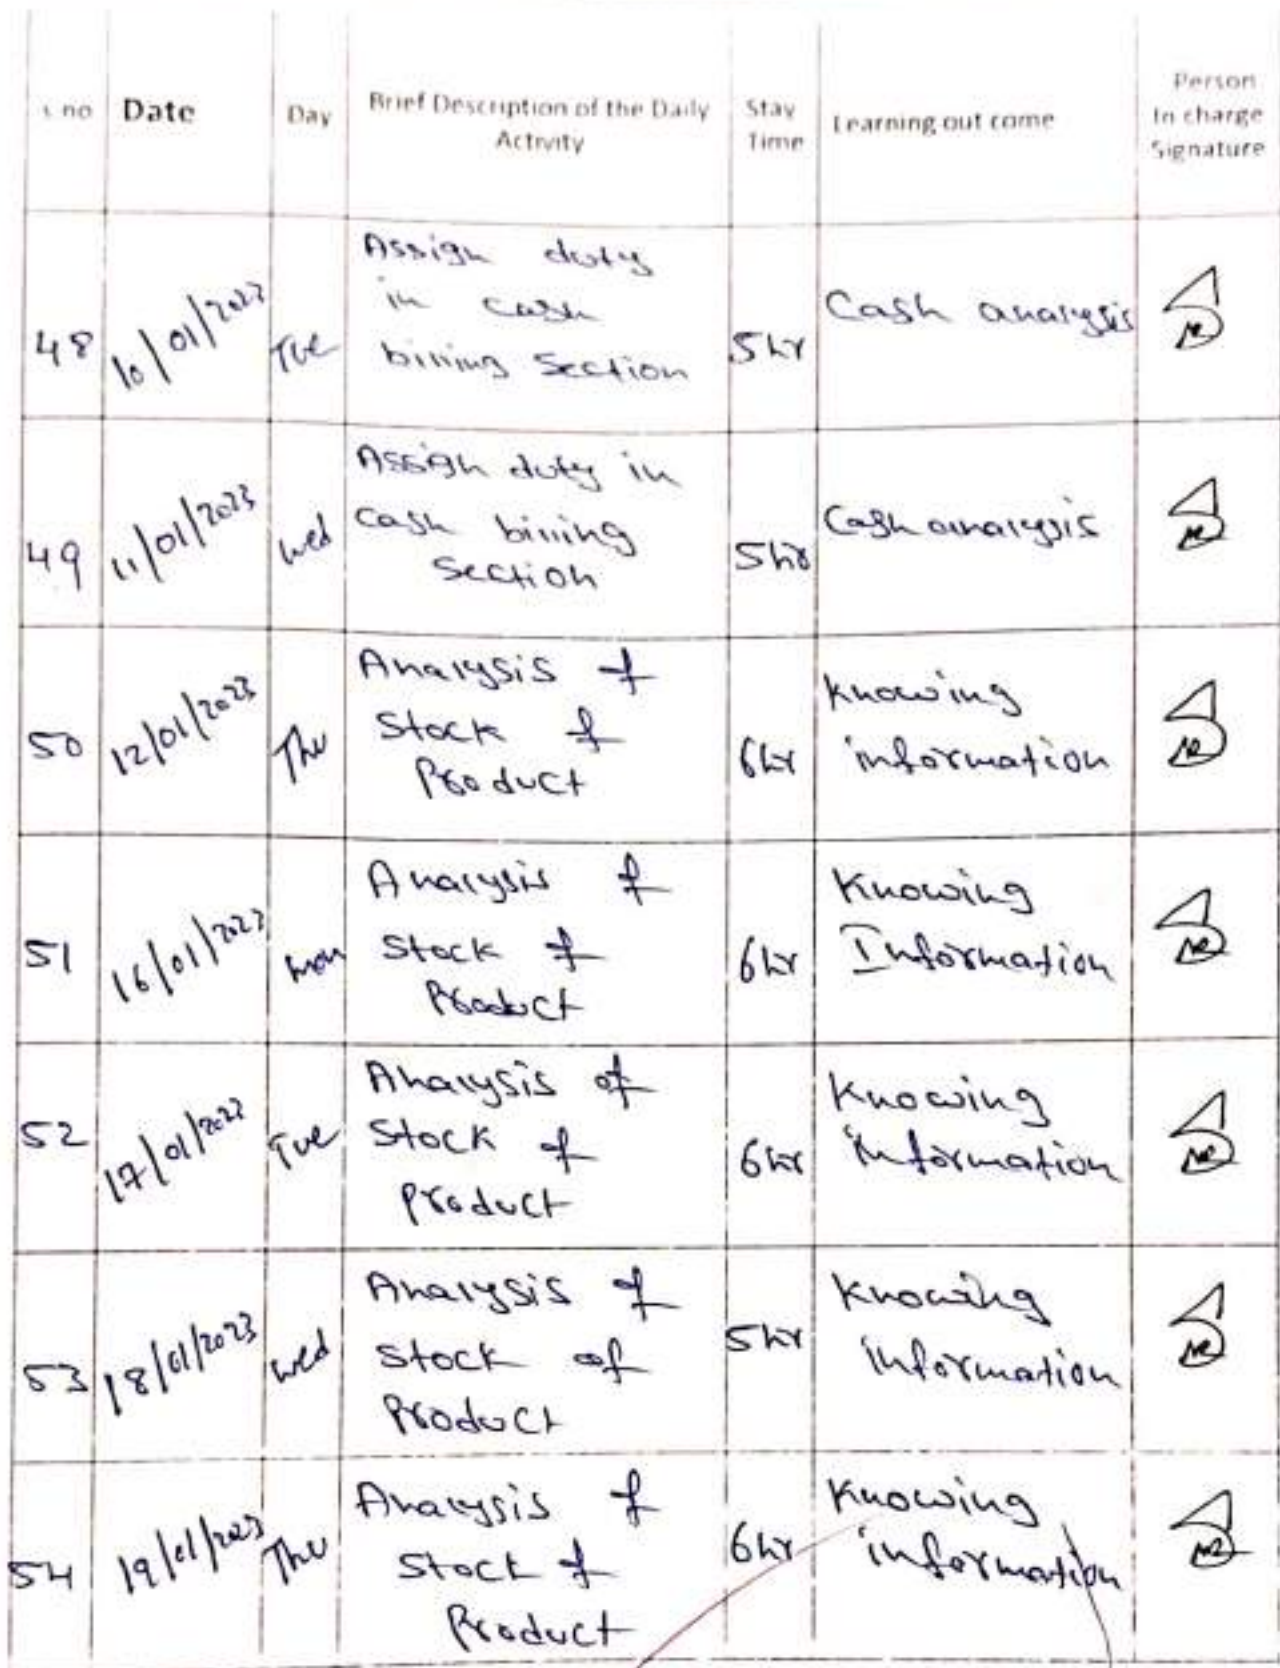 s.no Date Day Brief Description of the Daily Activity Stay Time Learning out come Person In charge Signature
48 10/01/2023 Tue Assign duty in cash billing Section 5hr Cash analysis
49 11/01/2023 wed Assign duty in cash billing Section 5hr Cash analysis
50 12/01/2023 Thu Analysis of Stock of Product 6hr Knowing information
51 16/01/2023 mon Analysis of Stock of Product 6hr Knowing Information
52 17/01/2023 Tue Analysis of Stock of Product 6hr Knowing information
53 18/01/2023 wed Analysis of Stock of Product 5hr Knowing information
54 19/01/2023 Thu Analysis of Stock of Product 6hr Knowing information